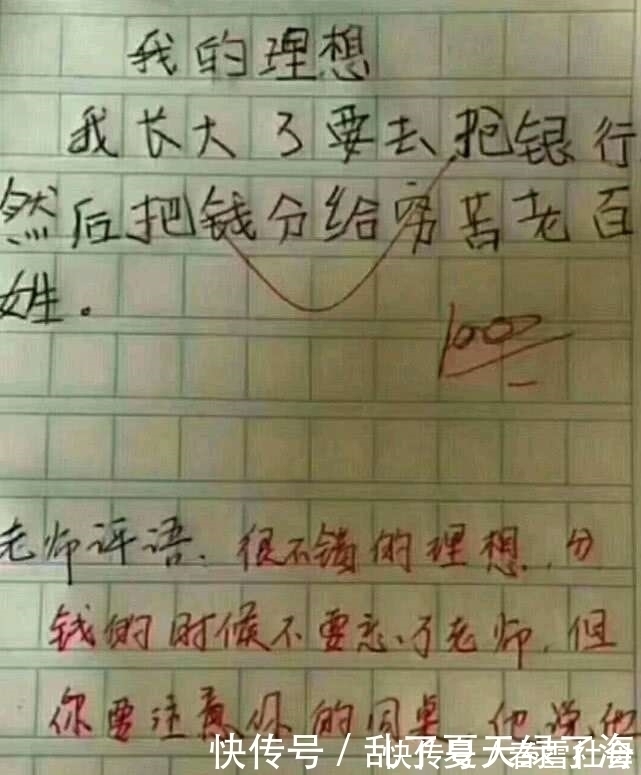 我的理想
我长大了要去抢银行
然后把钱分给穷苦老百
姓。
100
老师评语:很不错的理想,分
钱的时候不要忘了老师,但
你要注意你的同桌 他说他
快传号 / 乱了夏天
快传号 /